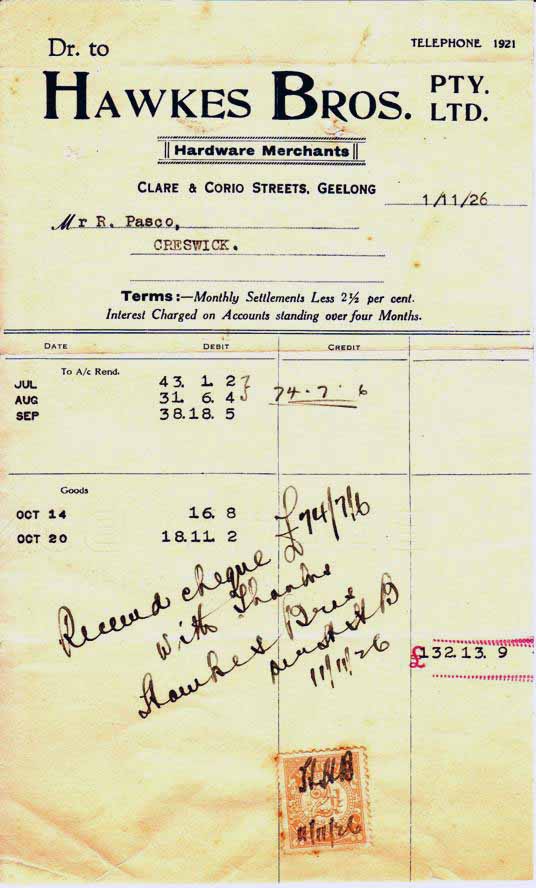 Dr. to
TELEPHONE 1921
HAWKES BROS. PTY. LTD.
Hardware Merchants
CLARE & CORIO STREETS, GEELONG
1/11/26
Mr R. Pasco,
CRESWICK.
Terms:—Monthly Settlements Less 2½ per cent.
Interest Charged on Accounts standing over four Months.
DATE DEBIT CREDIT
To A/c Rend.
JUL 43. 1. 2
AUG 31. 6. 4 74.7.6
SEP 38.18. 5
Goods
OCT 14 16. 8
OCT 20 18.11. 2
£74/7/6
Received cheque
with Thanks
Hawkes Bros
HHB
11/11/26
£132.13. 9
HHB
11/11/26